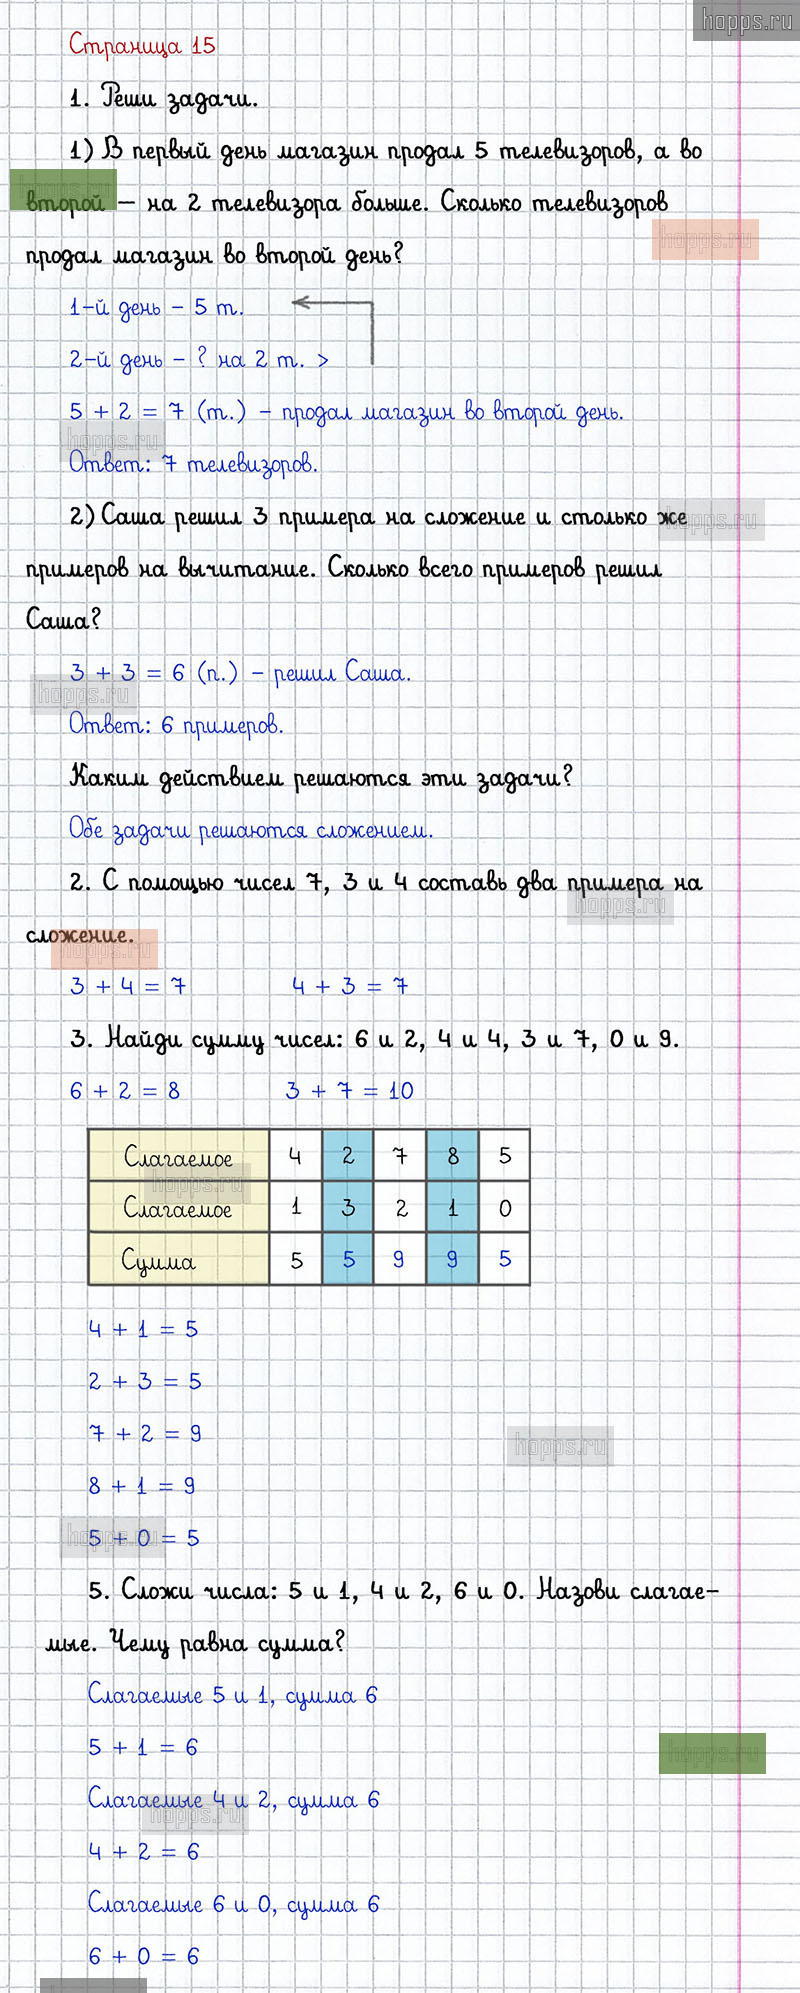 hopps.ru
Страница 15
1. Реши задачи.
1) В первый день магазин продал 5 телевизоров, а во
hopps.ru
второй – на 2 телевизора больше. Сколько телевизоров
hopps.ru
продал магазин во второй день?
1-й день – 5 т.
2-й день – ? на 2 т. >
5 + 2 = 7 (т.) – продал магазин во второй день.
hopps.ru
Ответ: 7 телевизоров.
2) Саша решил 3 примера на сложение и столько же
hopps.ru
примеров на вычитание. Сколько всего примеров решил
Саша?
3 + 3 = 6 (п.) – решил Саша.
hopps.ru
Ответ: 6 примеров.
Каким действием решаются эти задачи?
Обе задачи решаются сложением.
2. С помощью чисел 7, 3 и 4 составь два примера на
hopps.ru
сложение.
hopps.ru
3 + 4 = 7 4 + 3 = 7
3. Найди сумму чисел: 6 и 2, 4 и 4, 3 и 7, 0 и 9.
6 + 2 = 8 3 + 7 = 10
Слагаемое 4 2 7 8 5
hopps.ru
Слагаемое 1 3 2 1 0
Сумма 5 5 9 9 5
4 + 1 = 5
2 + 3 = 5
7 + 2 = 9
hopps.ru
8 + 1 = 9
hopps.ru
5 + 0 = 5
5. Сложи числа: 5 и 1, 4 и 2, 6 и 0. Назови слагае-
мые. Чему равна сумма?
Слагаемые 5 и 1, сумма 6
5 + 1 = 6
hopps.ru
Слагаемые 4 и 2, сумма 6
hopps.ru
4 + 2 = 6
Слагаемые 6 и 0, сумма 6
6 + 0 = 6